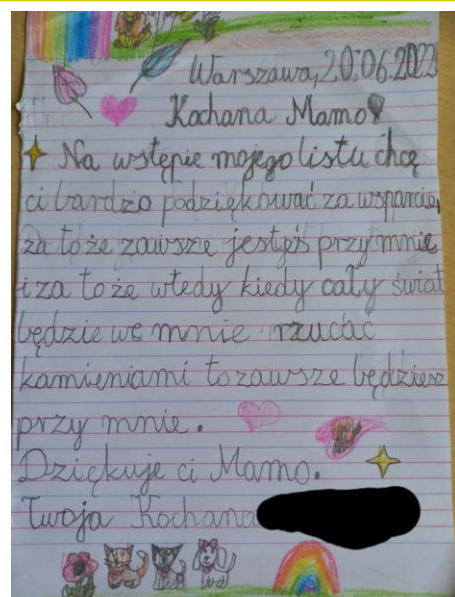 Warszawa, 20.06.202
Kochana Mamo!
Na wstępie mojego listu chcę
ci bardzo podziękować za wsparcie,
za to że zawsze jesteś przy mnie
i za to że wtedy kiedy cały świat
będzie we mnie rzucać
kamieniami to zawsze będziesz
przy mnie.
Dziękuje ci Mamo.
Twoja Kochana